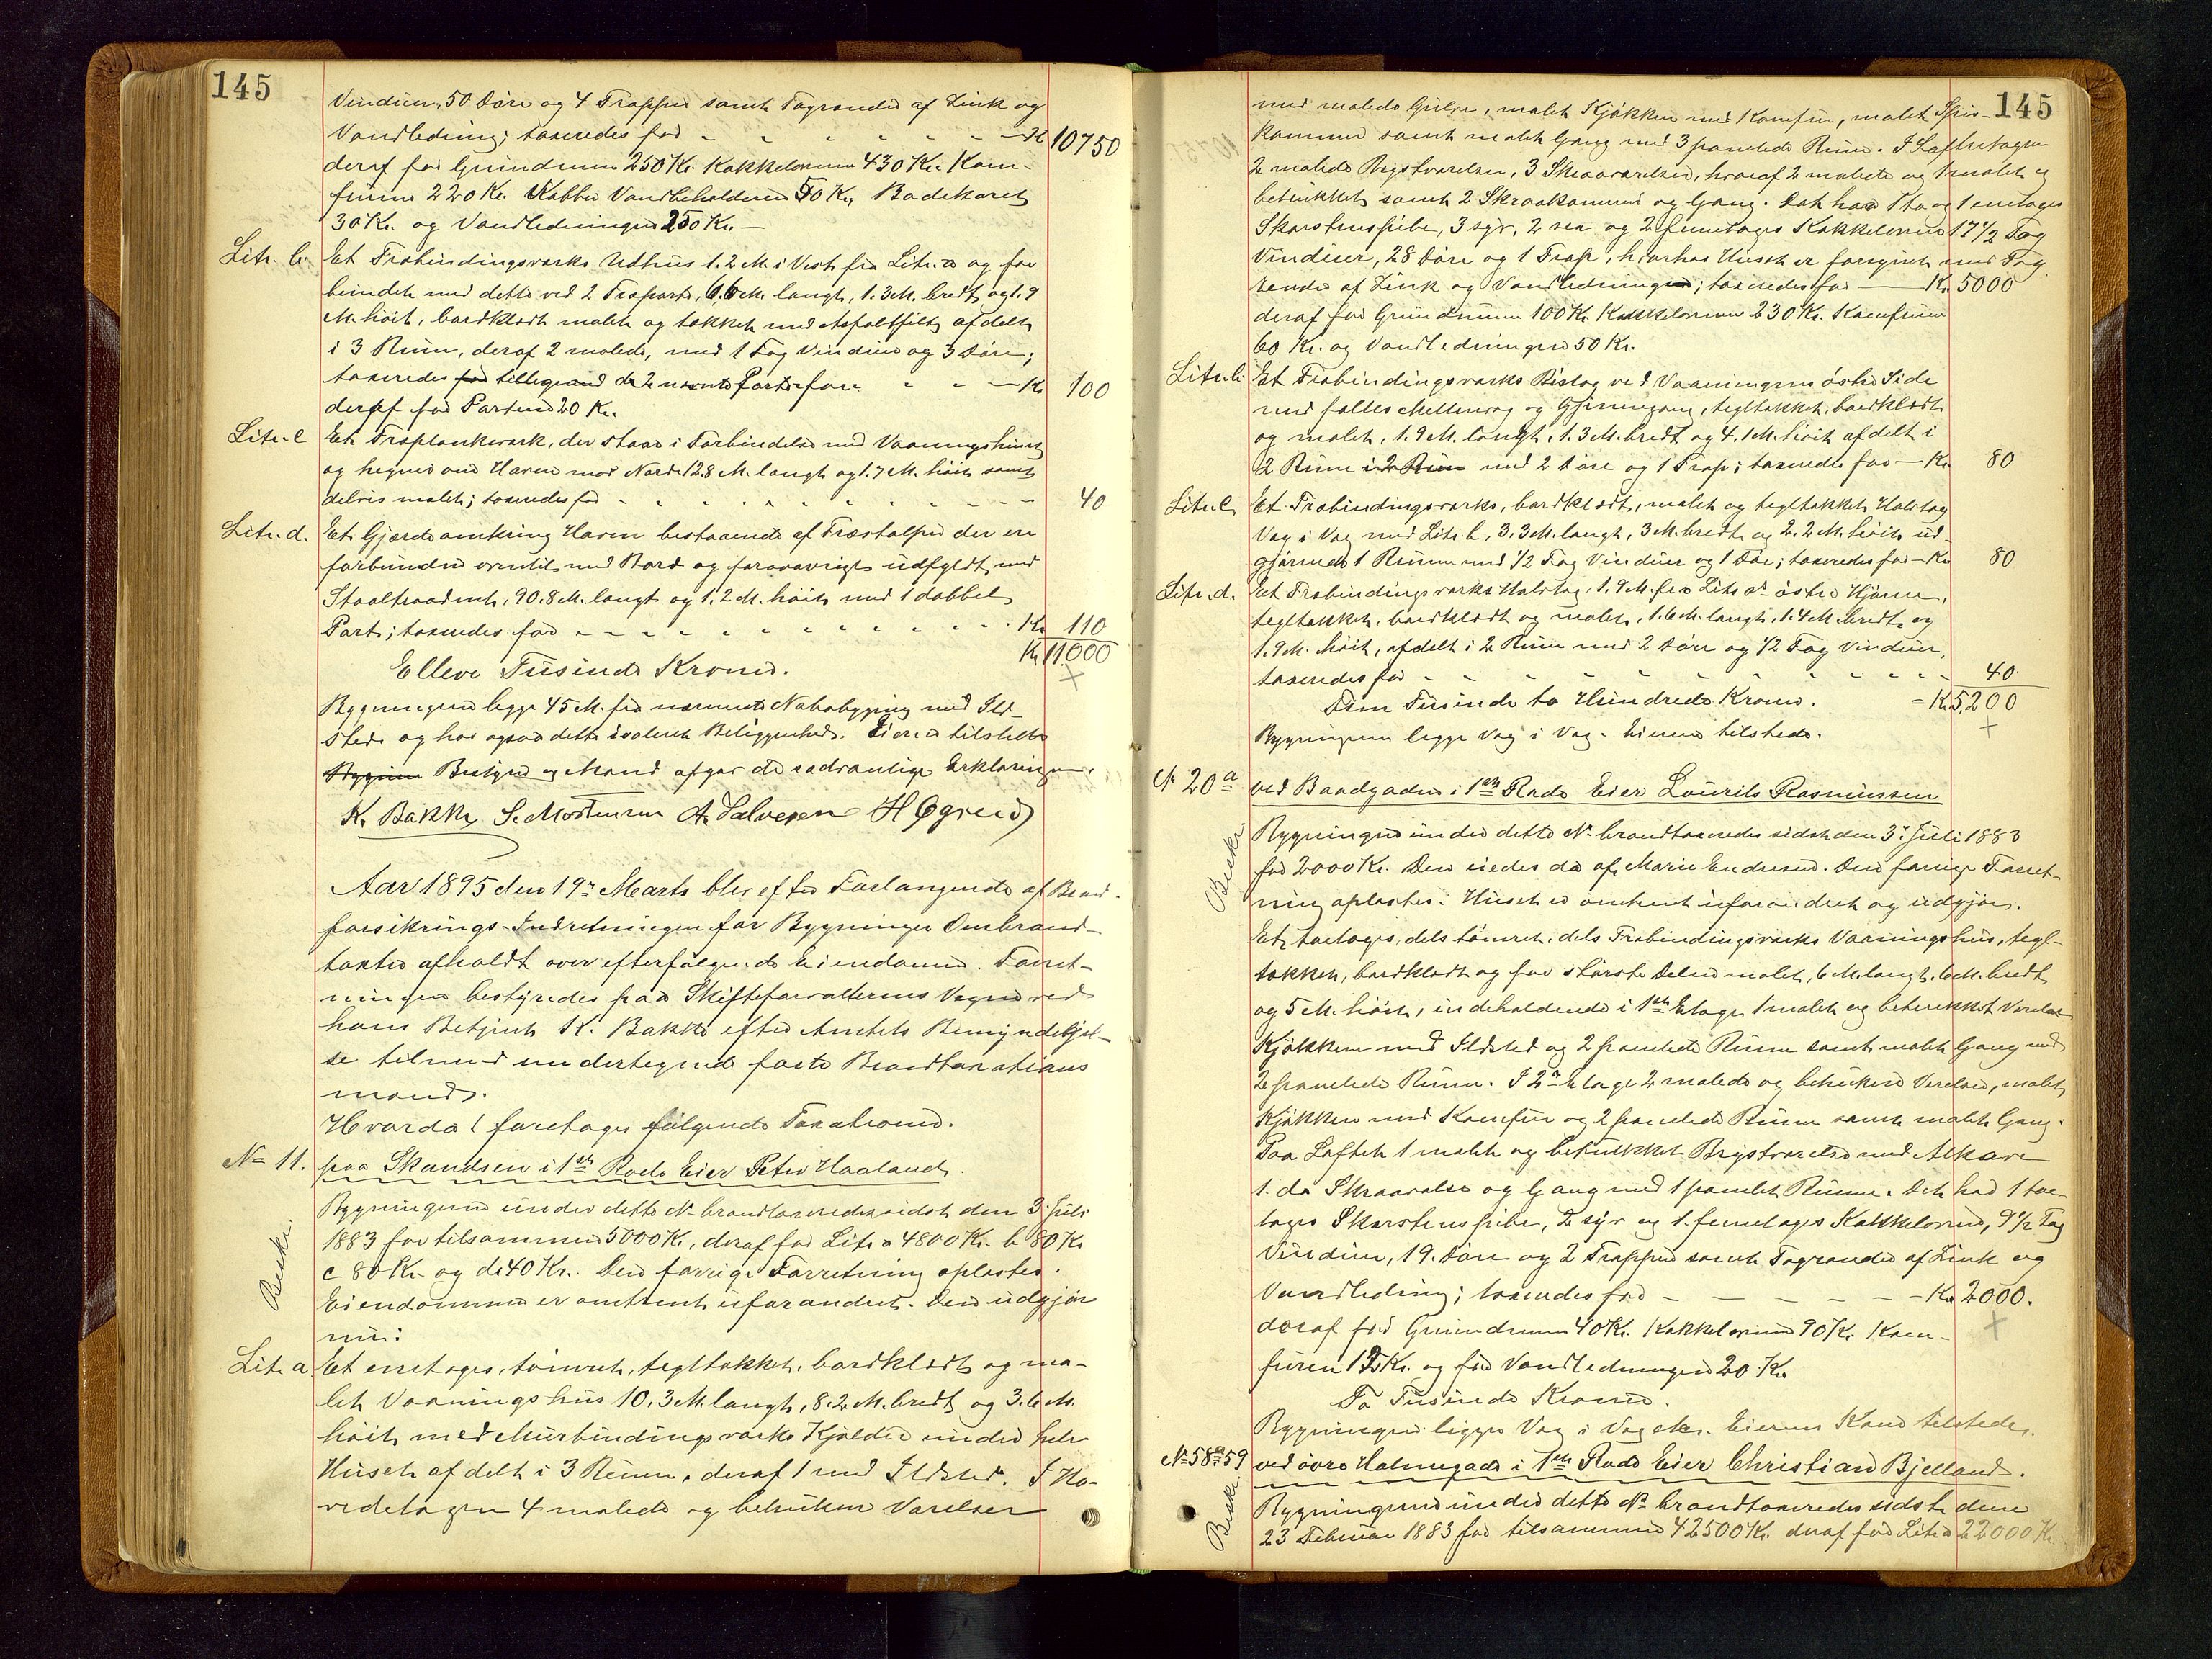 145
Vinduer, 50 Døre og 4 Trapper samt Tagrender af Zink og
Vandledning; taxeredes for - - - - - - - Kr 10750
deraf for Grundmuren 250 Kr. Kakkelovnene 430 Kr. Kom-
furene 220 Kr. Kobber Vandbeholderen 50 Kr, Badekaret
30 Kr. og Vandledningen 250 Kr. —
Litr. b. Et Træbindingsværks Udhus 1.2 M. i Vest fra Litr. a og for
bundet med dette ved 2 Træporte, 6.6 M. langt, 1.3 M. bredt, og 1.9
M. høit, bordklædt malet og tækket med Asfaltfilt, afdelt
i 3 Rum, deraf 2 malede, med 1 Fag Vinduer og 3 Døre;
taxeredes for tilligemed de 2 nævnte Porte for - - - Kr 100
deraf for Portene 20 Kr.
Litr. c Et Træplankeværk, der staar i Forbindelse med Vaaningshuset
og hegner om Haven mod Nord 12.8 M. langt og 1.7 M. høit samt
delvis malet; taxeredes for - - - - - - - - - 40
Litr. d. Et Gjærde omkring Haven bestaaende af Træstolper der er
forbundne oventil med Bord og forøvrigt udfyldt med
Staaltraadnet, 90.8 M. langt og 1.2 M. høit, med 1 dobbel
Port; taxeredes for - - - - - - - - - - Kr 110
Kr 11000
Elleve Tusinde Kroner.
Bygningen ligger 45 M. fra nærmeste Nabobygning med Ild-
sted og har ogsaa dette isoleret Beliggenhed. Eieren tilstede
Bygnin Bestyrer og Mænd afgav de sædvanlige Erklæringer.
K. Bakke S. Mortensen A. Salvesen H Øgreid
Aar 1895 den 19de Marts blev efter Forlangende af Brand-
forsikrings-Indretningen for Bygninger Ombrand-
taxter afholdt over efterfølgende Eiendomme. Forret-
ningen bestyredes paa Skifteforvalterens Vegne ved
hans Betjent K. Bakke efter Amtets Bemyndigel-
se tilmed undertegnede faste Brandtaxations
mænd.
Hvorda! foretoges følgende Taxationer.
No 11. paa Skandsen i 1ste Rode Eier Peter Haaland.
Beskr. Bygningerne under dette No brandtaxeredes sidst den 3 Juli
1883 for tilsammen 5000 Kr, deraf for Litr a 4800 Kr. b 80 Kr
c 80 Kr og d. 40 Kr. Den forrige Forretning oplæstes.
Eiendommen er omtrent uforandret. Den udgjør
nu:
Lit. a Et enetages, tømret, tegltækket, bordklædt og ma-
let Vaaningshus 10.3 M. langt, 8.2 M. bredt og 3.6 M.
høit, med Murbindingsværks Kjælder under hele
Huset afdelt i 3 Rum, deraf 1 med Ildsted. I Ho-
vedetagen 4 malede og betrukne Værelser
145
med malede Gulve, malet Kjøkken med Komfur, malet Spis-
kammer samt malet Gang med 3 panelede Rum. I Loftsetagen
2 malede Bryst værelser, 3 Skraaværelser, hvoraf 2 malede og 1 malet og
betrukket samt 2 Skraakammer og Gang. Det har 1 to og 1 enetages
Skorstenspibe, 3 syv, 2 sex og 2 femetages Kakkelovne 17 1/2 Fag
Vinduer, 28 Døre og 1 Trap, hvorhos Huset er forsynet med Tag
render af Zink og Vandledningen; taxeredes for — Kr. 5000
deraf for Grundmuren 100 Kr. Kakkelovnene 230 Kr. Komfuren
60 Kr. og Vandledningen 50 Kr.
Litr. b. Et Træbindingsværks Bislag ved Vaaningens østre Side
med fælles Mellemvæg og Gjennemgang, tegltækket, bordklædt
og malet, 1.9 M. langt, 1.3 M. bredt og 4.1 M. høit afdelt i
2 Rum i 2 Rum med 2 Døre og 1 Trap; taxeredes for — Kr. 80
Litr. c. Et Træbindingsværks, bordklædt, malet og tegltækket Halvtag
Væg i Væg med Litr. b, 3.3 M. langt, 3 M. bredt og 2.2 M. høit, ud-
gjørende 1 Rum med 1/2 Fag Vinduer og 1 Dør; taxeredes for — Kr 80
Litr. d. Et Træbindingsværks Halvtag, 1.9 M. fra Litr a's østre Hjørne,
tegltækket, bordklædt og malet, 1.6 M. langt, 1.4 M. bredt og
1.9 M. høit, afdelt i 2 Rum med 2 Døre og 1/2 Fag Vinduer,
taxeredes for - - - - - - - - - 40.
Fem Tusinde to Hundrede Kroner. = Kr. 5,200
Bygningerne ligger Væg i Væg. Eieren tilstede.
No 20a ved Baadgaden i 1ste Rode Eier Lourits Rasmussen
Beskr. Bygningen under dette No brandtaxeredes sidst den 3 Juli 1883
for 2000 Kr. Den eiedes da af Marie Endresen. Den forrige Forret-
ning oplæstes. Huset er omtrent uforandret og udgjør.
Et toetages, dels tømret, dels Træbindingsværks Vaaningshus, tegl-
tækket, bordklædt og for største Delen malet, 6 M. langt, 6 M. bredt
og 5 M. høit, indeholdende i 1ste Etage 1 malet og betrukket Værelse
Kjøkken med Ildsted og 2 panelede Rum samt malet Gang med
2 panelede Rum. I 2den Etage 2 malede og betrukne Værelser, malet
Kjøkken med Komfur og 2 panelede Rum samt malet Gang.
Paa Loftet 1 malet og betrukket Brystværelse med Alkove
1. do Skraaværelse og Gang med 1 panelet Rum. Det har 1 toe-
tages Skorstenspibe, 2 syv og 1. femetages Kakkelovne, 9 1/2 Fag
Vinduer, 19. Døre og 2 Trapper samt Tagrender af Zink og
Vandledning; taxeredes for - - - - - - Kr 2000.
deraf for Grundmuren 40 Kr. Kakkelovnene 90 Kr. Kom-
furen 12 Kr. og for Vandledningen 20 Kr
To Tusinde Kroner.
Bygningen ligger Væg i Væg etc. Eierens Kone tilstede.
No 58 & 59 ved øvre Holmegade i 1ste Rode Eier Christian Bjelland.
Beskr. Bygningerne under dette No brandtaxeredes sidst den
23 Februar 1883 for tilsammen 42500 Kr. deraf for Litr a 22000 Kr